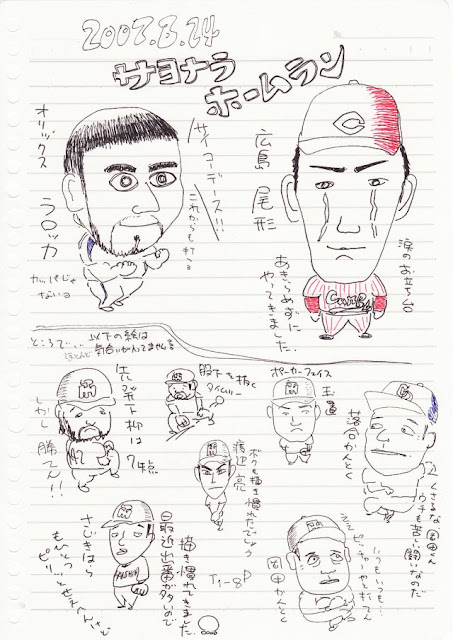 2007.8.24
サヨナラ
ホームラン
オリックス
ラロッカ
サイコーデース!!
これからも打つる
カッパじゃ
ないる
広島 尾形
C
あきらめずに
やってきました.
涙のお立ち台
ところで…
以下の絵は
ほとんど
気合いが入ってません
先発下柳は
7四
しかし
勝てん!!
42
股下を抜く
タイムリー
ポーカーフェイス
玉置
渡辺 亮
ボクも描き慣れたでしょう
落合かんとく
くさるな 岡田くん
ウチも苦しい闘いなのだ
さじきはら
もひとつ
ピリッ…と
せえへんなぁ
HANSHIN
最近出番が多いので
描き慣れてきました.
T1-8D
岡田かんとく
いつもいつも…
ピッチャーやも打てん